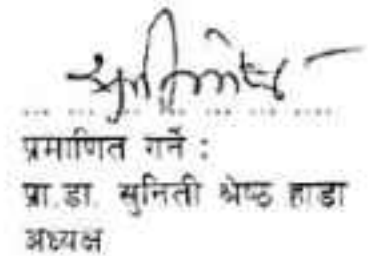 प्रमाणित गर्ने :
प्रा.डा. सुनिती श्रेष्ठ हाडा
अध्यक्ष